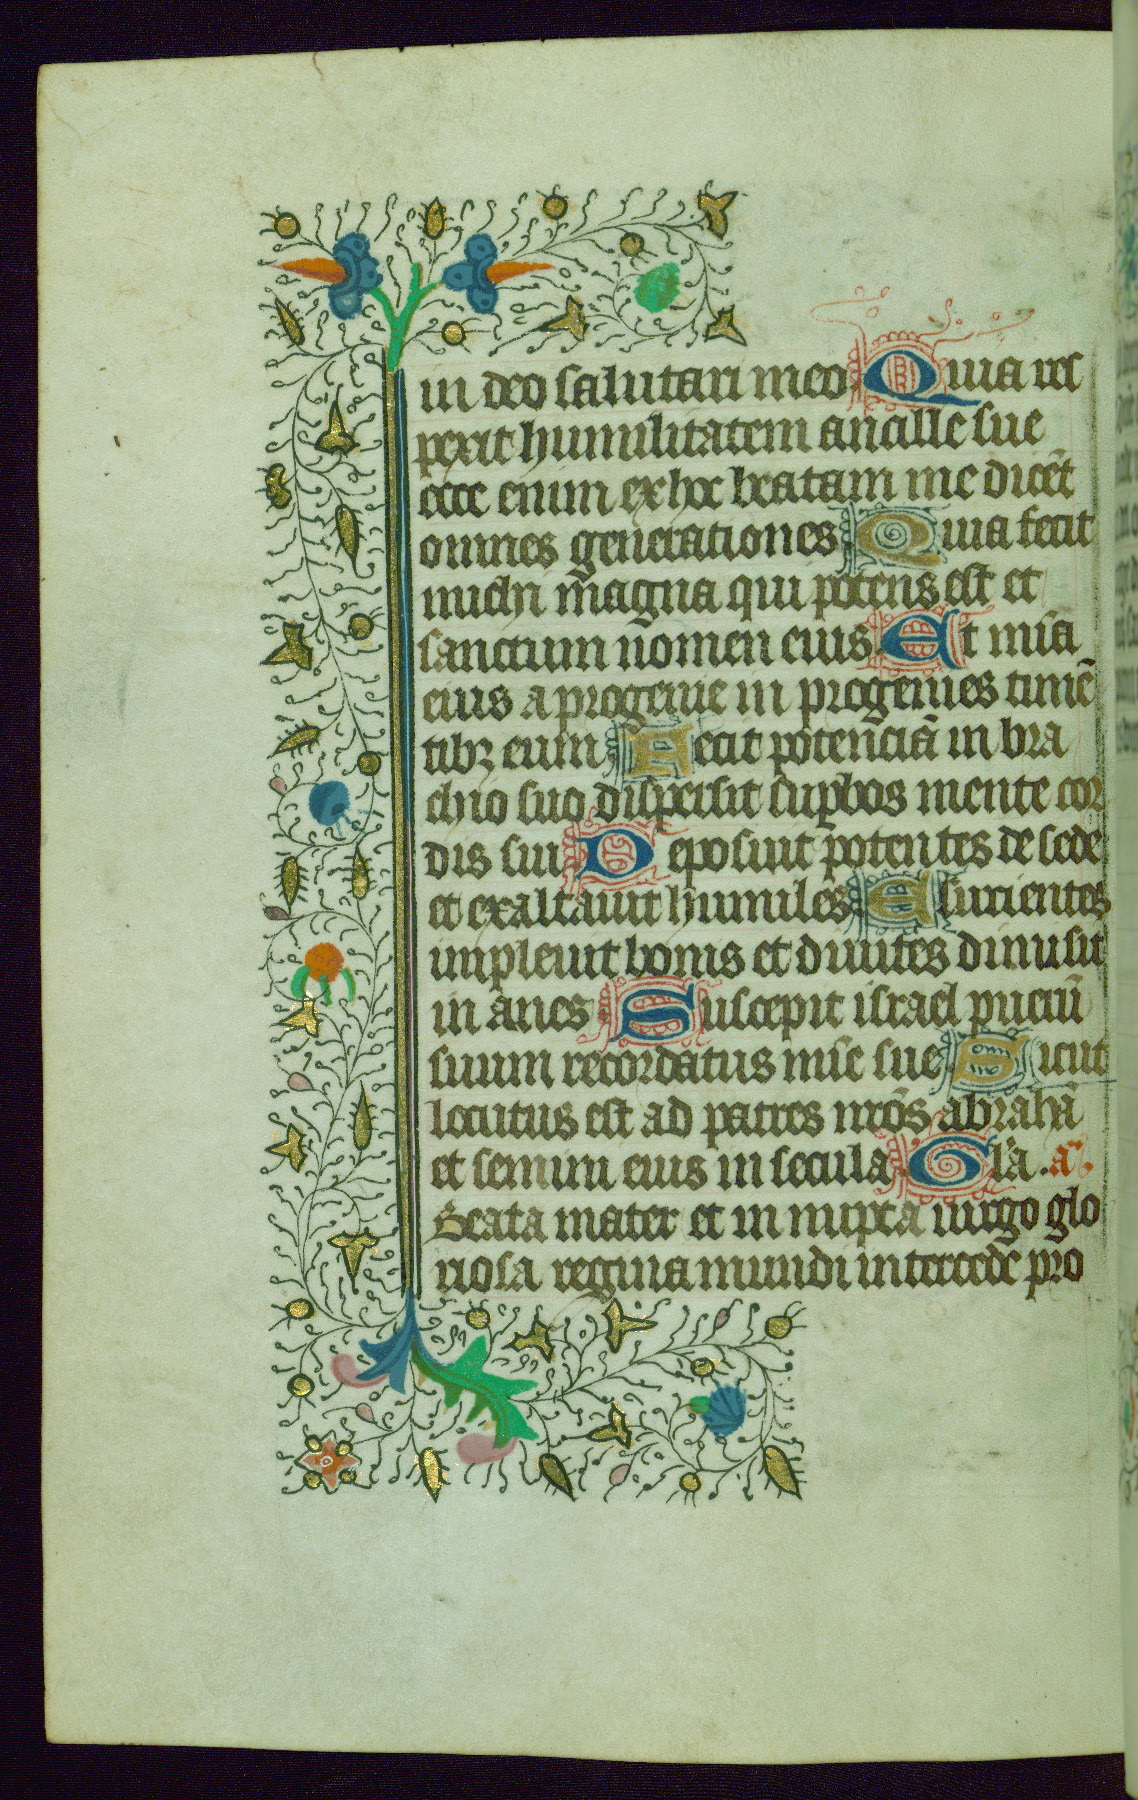 in deo salutari meo Quia res
pexit humilitatem ancille sue
ecce enim ex hoc beatam me dicēt
omnes generationes Quia fecit
michi magna qui potens est et
sanctum nomen eius Et mīa
eius a progenie in progenies timē
tibꝫ eum Fecit potenciā in bra
chio suo dispersit supbos mente cor
dis sui Deposuit potentes de sede
et exaltauit humiles Esurientes
impleuit bonis et diuites dimisit
in anes Suscepit israel puerū
suum recordatus mīe sue Sicut
locutus est ad patres nrōs abrahā
et semini eius in secula Glā. aͣ.
Beata mater et in nupta uirgo glo
riosa regina mundi intercede pro